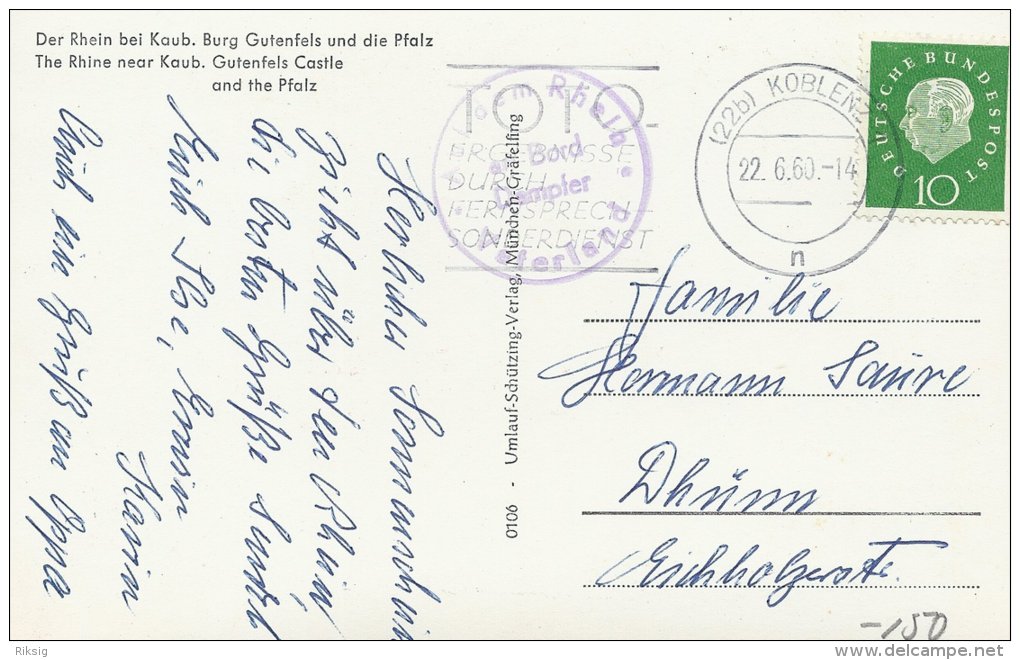 Der Rhein bei Kaub. Burg Gutenfels und die Pfalz
The Rhine near Kaub. Gutenfels Castle
and the Pfalz
TOTO-
ERGEBNISSE
DURCH
FERNSPRECH-
SONDERDIENST
Vom Rhein
an Bord
Dampfer
Vaterland
(22b) KOBLENZ
22.6.60.-14
n
DEUTSCHE BUNDESPOST
10
Herlicher Sonnenschein
die besten Grüße sendet
Karin
Auch ein Gruß an Oppa
0106 - Umlauf-Schützing-Verlag, München-Gräfelfing
Familie
Hermann Saure
Dhünn
Eichholzerstr.
-150
Riksig
www.delcampe.net